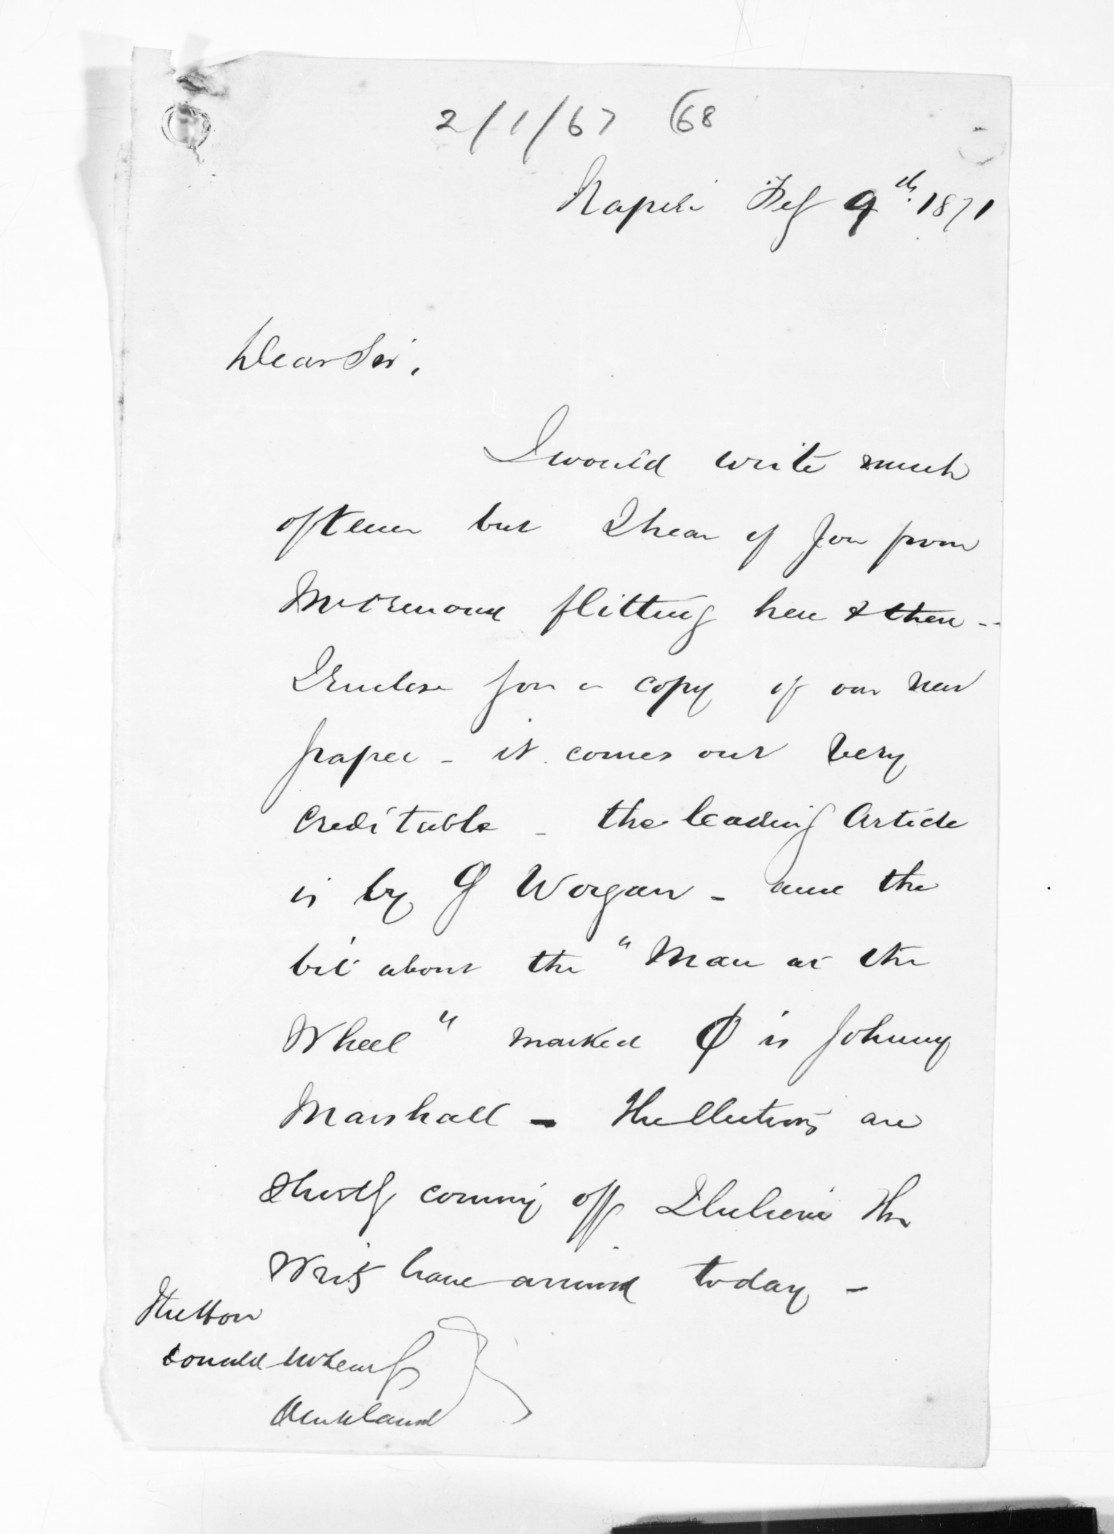 2/1/67 (68
Napier Feby 9th. 1871
Dear Sir,
I would write much
oftener but I hear of you from
flitting here & there --
I Enclose you a copy of our new
paper - it comes out very
Creditable - the leading Article
is by G Worgan - and the
bit about the "Man at the
Wheel" marked φ is Johnny
Marshall - The Elections are
shortly coming off I believe the
Writs have arrived today -
The Hon
Donald McLean
Auckland